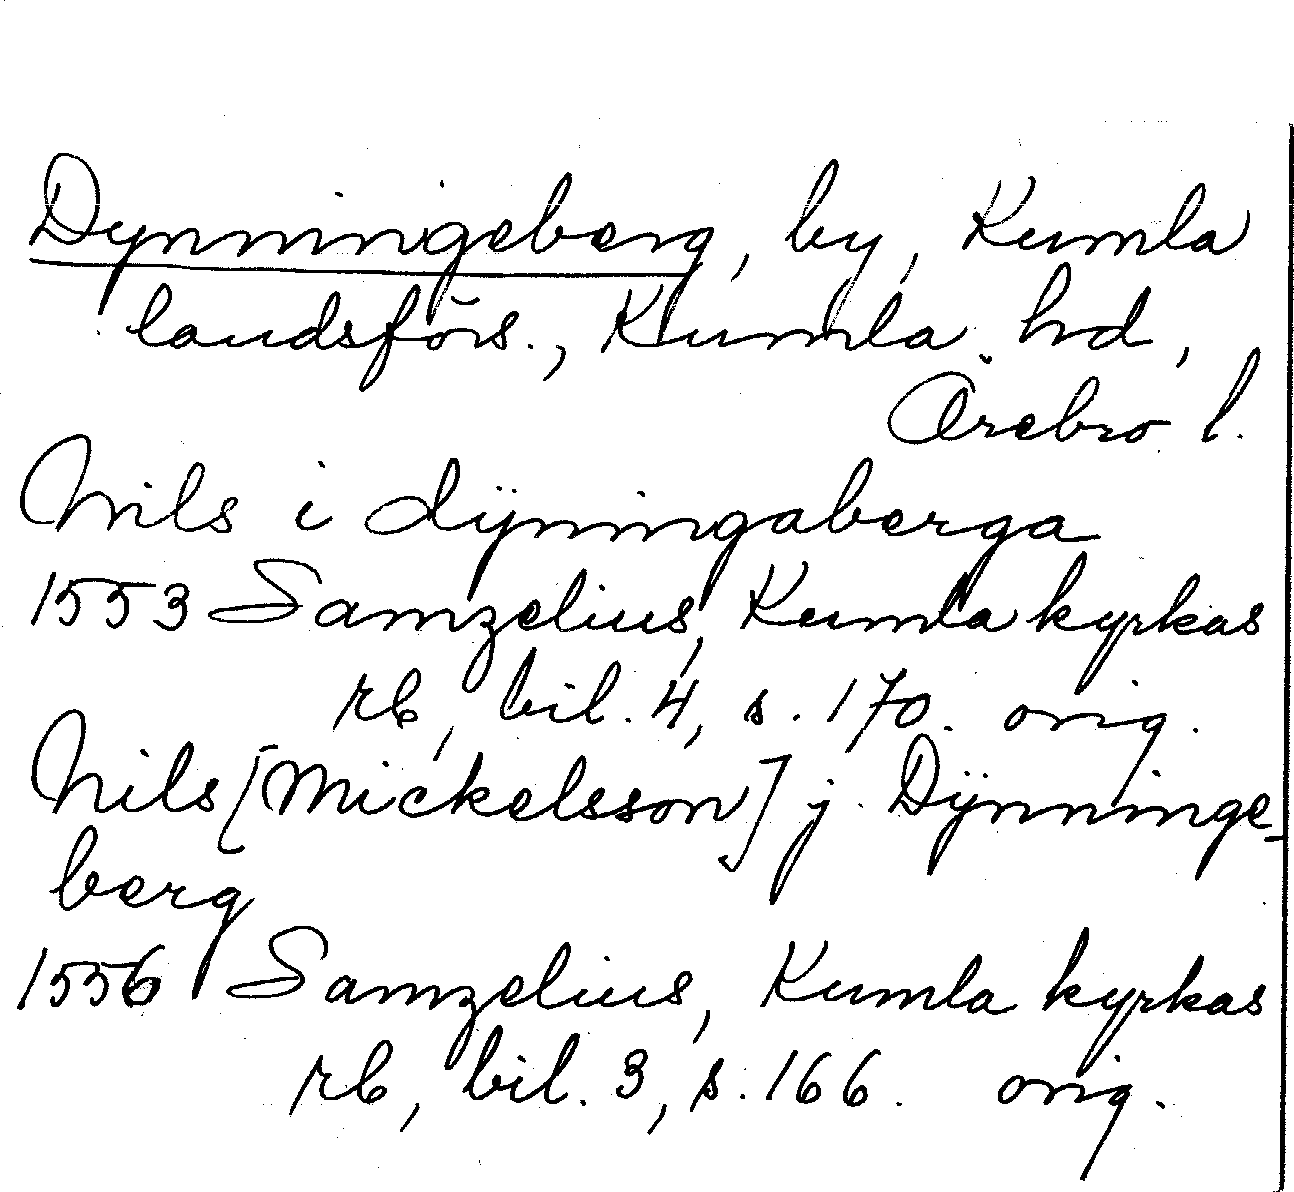 Dynningeberg, by, Kumla
landsförs., Kumla hd,
Örebro l.
Nils i dÿningaberga
1553 Samzelius, Kumla kyrkas
rb, bil. 4, s. 170. orig.
Nils [Mickelsson] j Dÿnninge-
berg
1556 Samzelius, Kumla kyrkas
rb, bil. 3, s. 166. orig.